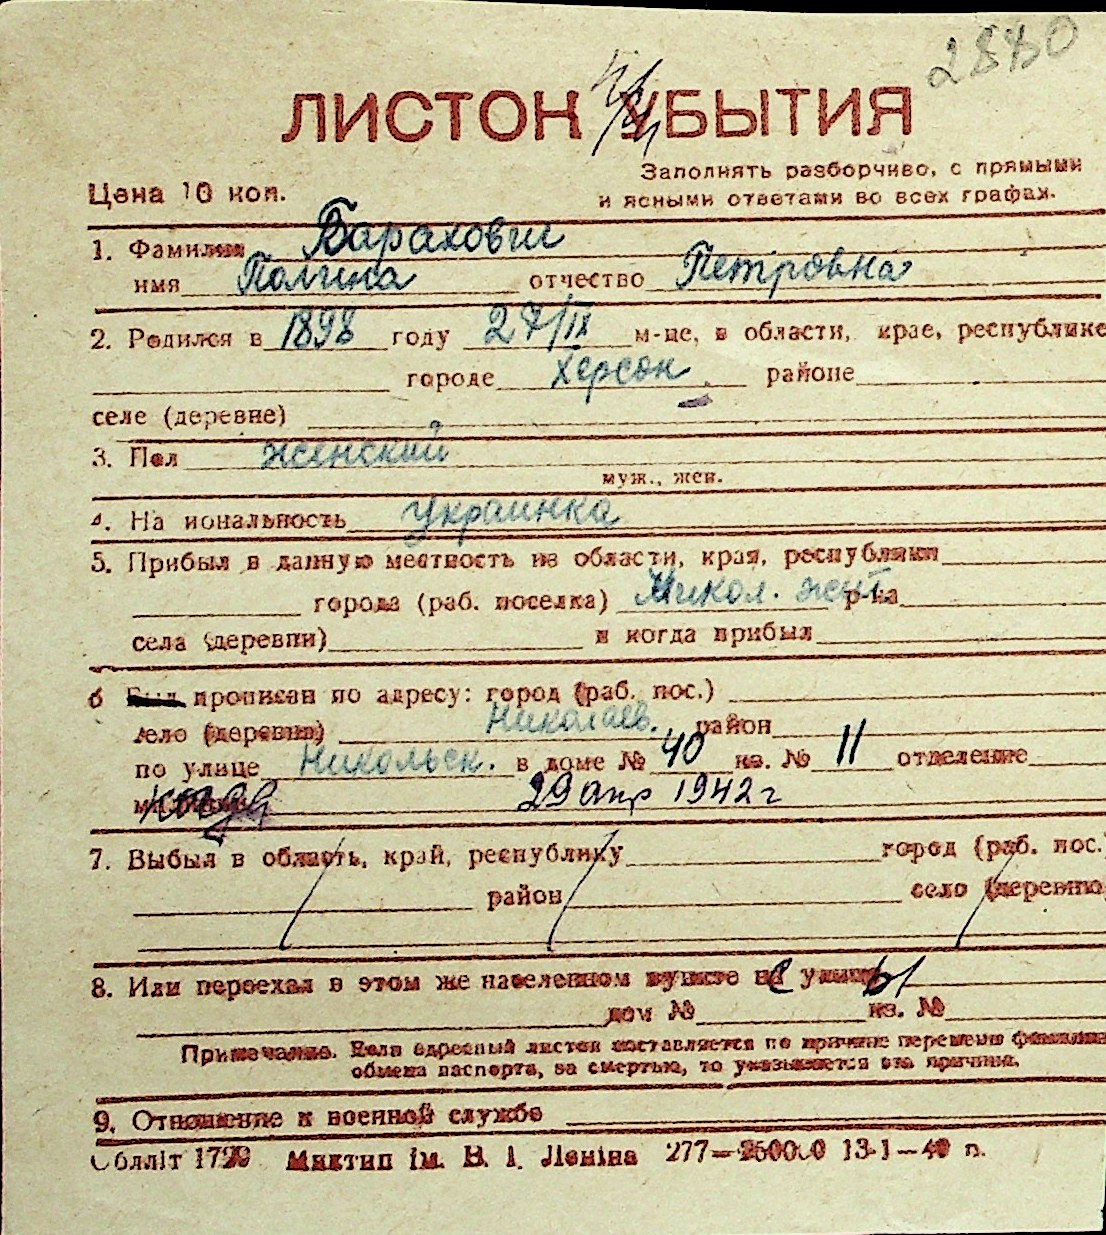 2880
ЛИСТОК УБЫТИЯ
Заполнять разборчиво, с прямыми
Цена 10 коп.
и ясными ответами во всех графах.
1. Фамилия Бараховш
имя Полина отчество Петровна
2. Родился в 1898 году 27/IX м-це, в области, крае, республике
городе Херсон районе
селе (деревне)
3. Пол женский
муж., жен.
4. На иональность украинка
5. Прибыл в данную местность из области, края, республики
города (раб. поселка) Микол. жит. р-на
села (деревни) и когда прибыл
6 Был прописан по адресу: город (раб. пос.)
село (деревня) Николаев. район
по улице Никольск. в доме № 40 кв. № 11 отделение
когда 29 апр 1942 г
7. Выбыл в область, край, республику город (раб. пос.)
район село (деревню
8. Или переехал в этом же населенном пункте с улицы
дом № кв. №
Примечание. Если адресный листок составляется по причине перемены фамилии
обмена паспорта, за смертью, то указывается эта причина.
9. Отношение к военной службе
Обллiт 1799 Миктип iм. В. I. Ленiна 277—250000 13-1—40 п.